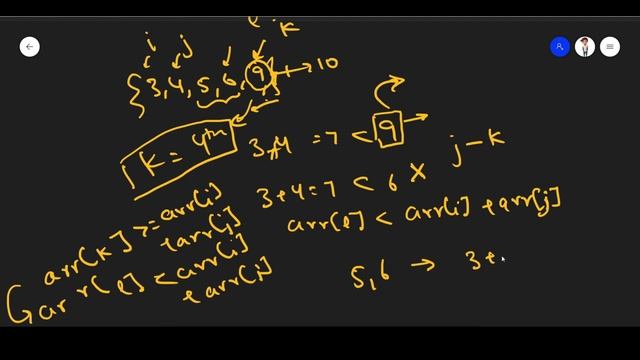 l k
i j
{3,4,5,6,9 → 10
K = 4th
3,4 = 7 < 9 →
j - k
3+4=7 < 6 x
arr[l] < arr[i] + arr[j]
arr[k] >= arr[i] + arr[j]
arr[l] < arr[i] + arr[j]
5,6 → 3+